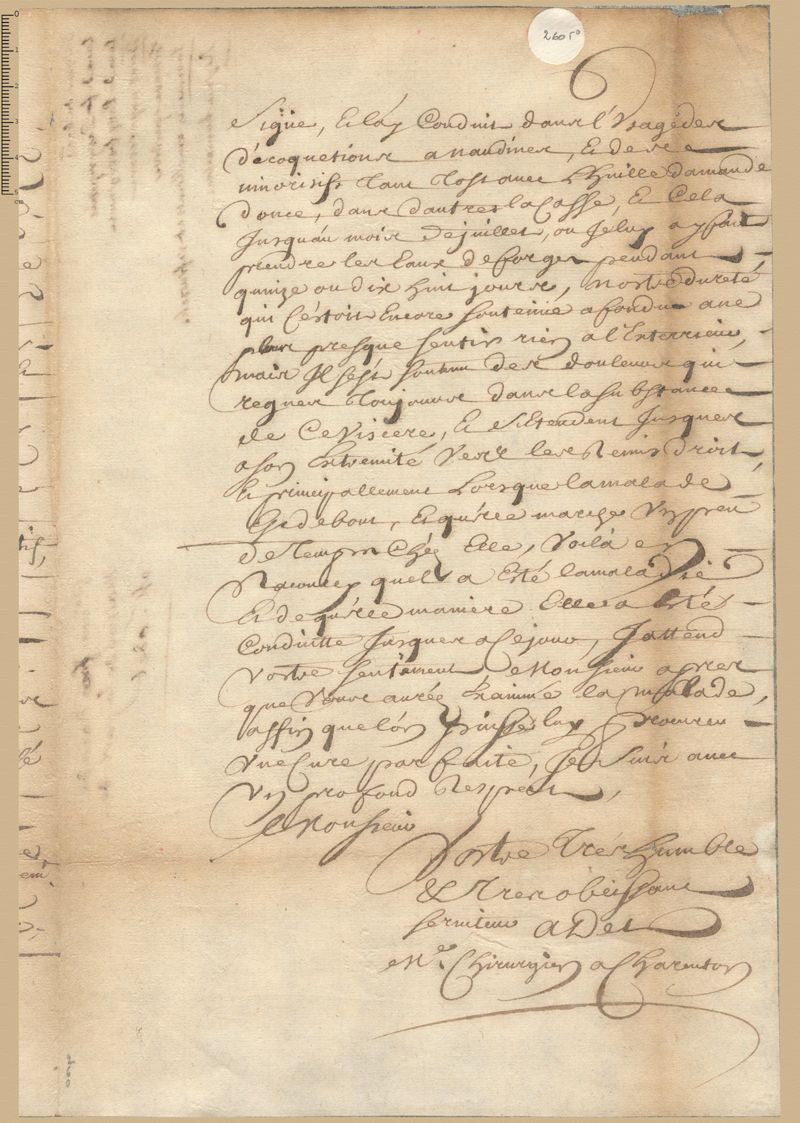 2605
signe, Et lay Conduit dans l'usage des
decoctions
minoratifs tant tost avec Lhuille damande
douce, dans dautres la Casse, Et Cela
Jusquau mois de juillet, ou Je luy ay fait
prendre les Eaux de forges pendant
quinze ou dix huit jours, nostre dureté
qui Cestoit Encore soutenüe a fondu
presque sentir rien a l'Exterrieur,
mais Il sest soutenu des douleurs qui
regnes toujours dans la substance
de Ce Viscere, Et s'Etendent Jusques
a son Extremité Vers les Reins droit,
Et principallement Lorsque la malade
Et debout, Et qu'elle marche Un peu
de temps Chez Elle, Voila en
Racourcy quel a Esté la maladie
Et de quelle maniere Elle a Esté
Conduitte Jusques a Ce jour, J'attend
Vostre sentiment Monsieur apres
que Vous aurée Examiné la malade,
affin que lon puisse luy procurer
Une Cure parfaite, Je suis avec
Un profond Respect,
Monsieur
Vostre Tres humble
& Tres obeissant
serviteur Adet
Me. Chirurgien a Charenton